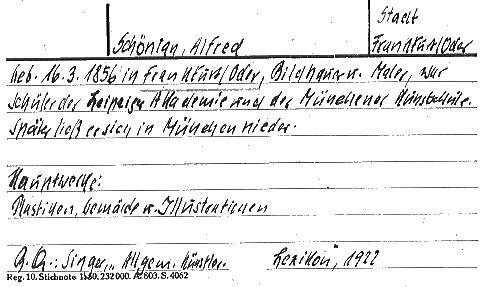 Stadt
Schönian, Alfred Frankfurt/Oder
geb. 16.3.1856 in Frankfurt/Oder, Bildhauer u. Maler, war
Schüler der Leipziger Akademie und der Münchener Kunstschule.
Später ließ er sich in München nieder.
Hauptwerke:
Plastiken, Gemälde u. Illustrationen
Q.Q.: Singer, „Allgem. Künstler- Lexikon", 1922
Reg. 10. Stichnote 1150. 232000. A. 603. S. 4062